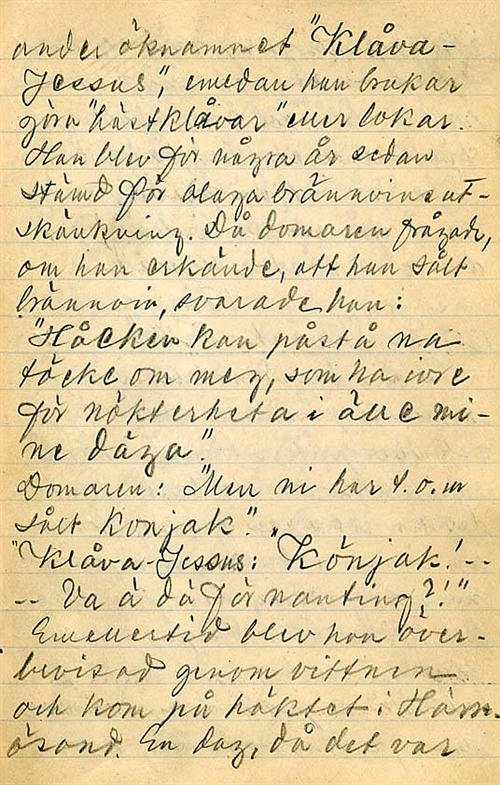 under öknamnet "Klåva-
Jessus", emedan han brukar
göra "hästklåvar" eller lokar.
Han blev för några år sedan
stämd för olaga brännvinsut-
skänkning. Då domaren frågade,
om han erkände, att han sålt
brännvin, svarade han:
"Håcken kan påstå na
töcke om meg, som ha vore
för nökterheta i älle mi-
ne daga".
Domaren: "Men ni har t.o.m
sålt konjak".
"Klåva-Jessus: "Könjak! --
-- Va ä dä för nanting?!"
Emellertid blev han över-
bevisad genom vittnen
och kom på häktet i Härn-
ösand. En dag, då det var